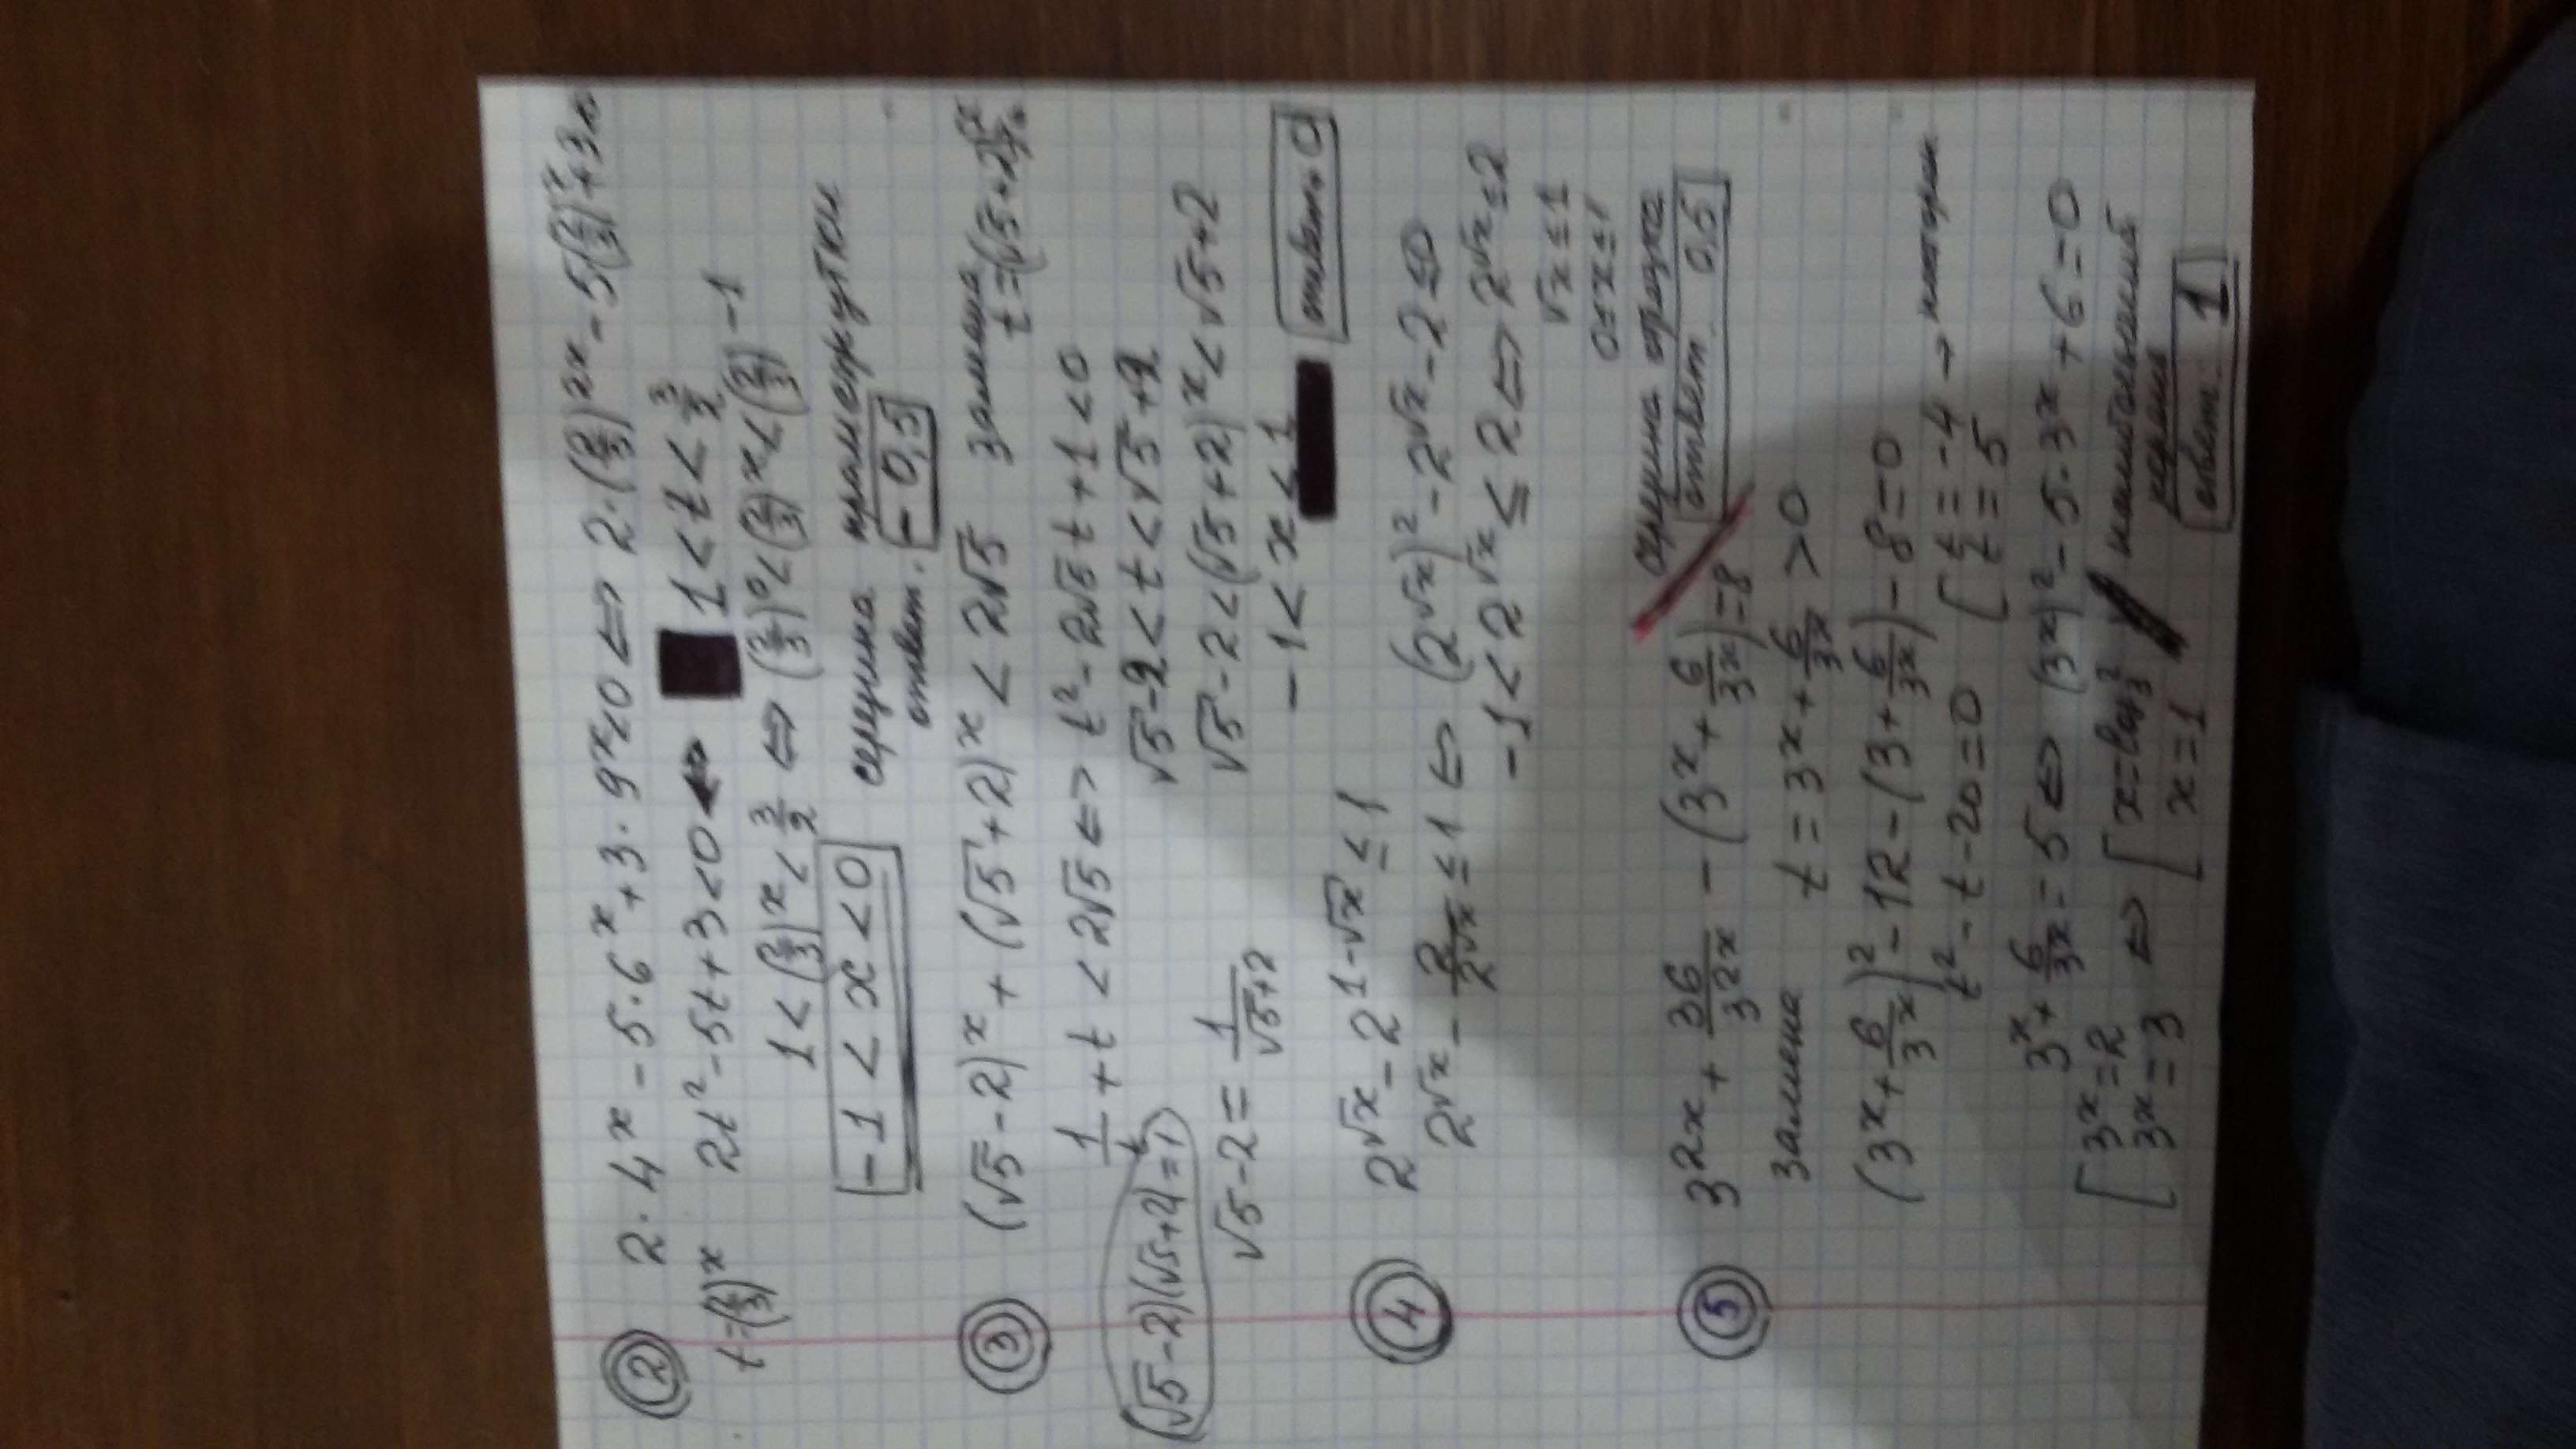 ② 2·4ˣ - 5·6ˣ + 3·9ˣ<0 ⇔ 2·(2/3)²ˣ - 5(2/3)ˣ + 3<
t=(2/3)ˣ 2t² - 5t + 3<0 ⇔ 1 < t < 3/2
1 < (2/3)ˣ < 3/2 ⇔ (2/3)⁰ < (2/3)ˣ < (2/3)⁻¹
-1 < x < 0 середина промежутки
ответ. -0,5
③ (√5-2)ˣ + (√5+2)ˣ < 2√5 замена t=(√5+2)ˣ
1/t + t < 2√5 ⇔ t² - 2√5t + 1 < 0
(√5-2)(√5+2)=1 √5-2 < t < √5+2
√5-2 = 1/(√5+2) √5-2 < (√5+2)ˣ < √5+2
-1 < x < 1 ответ. 0
④ 2^√x - 2^(1-√x) ≤ 1
2^√x - 2/2^√x ≤ 1 ⇔ (2^√x)² - 2^√x - 2 ≤ 0
-1 < 2^√x ≤ 2 ⇔ 2^√x ≤ 2
√x ≤ 1
0≤x≤1
середина отрезка
ответ. 0,5
⑤ 3²ˣ + 36/3²ˣ - (3ˣ + 6/3ˣ) = 8
замена t = 3ˣ + 6/3ˣ > 0
(3ˣ + 6/3ˣ)² - 12 - (3 + 6/3ˣ) - 8 = 0
t² - t - 20 = 0 [t = -4 →
t = 5
3ˣ + 6/3ˣ = 5 ⇔ (3ˣ)² - 5·3ˣ + 6 = 0
[3ˣ = 2 ⇔ [x = log₃2 наибольший
3ˣ = 3 x = 1 корень
ответ. 1